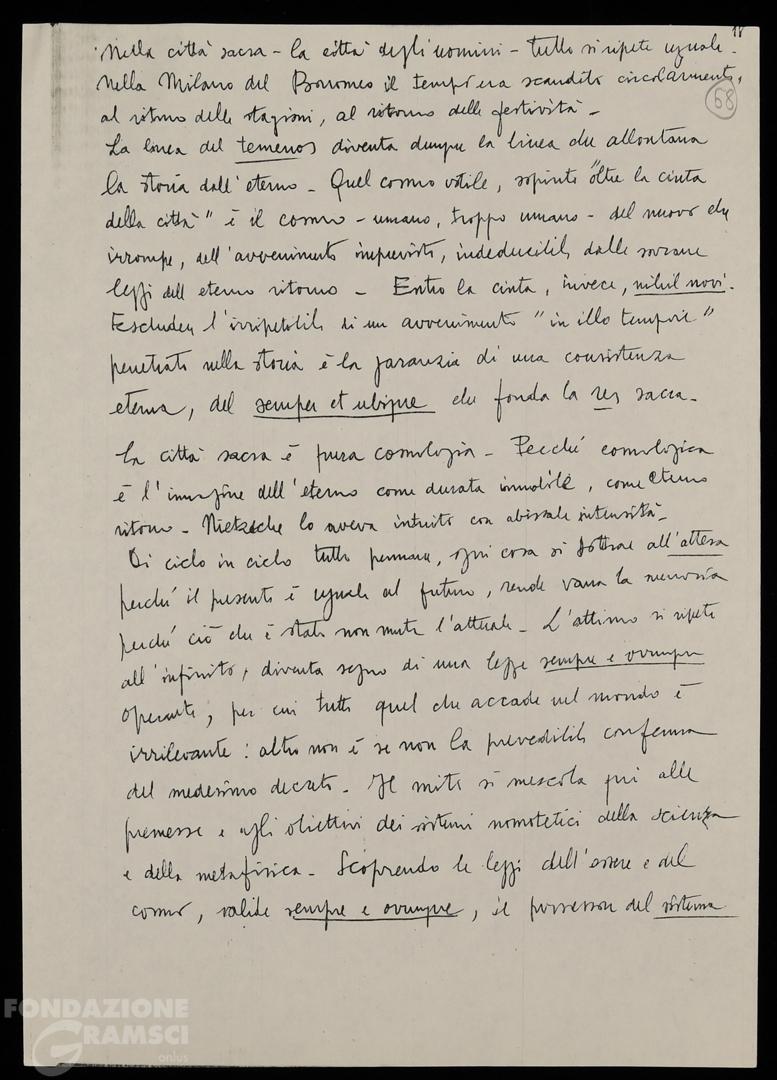 18
68
Nella città sacra – la città degli uomini – tutto si ripete uguale.
Nella Milano del Borromeo il tempo era scandito circolarmente,
al ritmo delle stagioni, al ritorno delle festività –
La linea del temenos diventa dunque la linea che allontana
la storia dall'eterno – Quel cosmo ostile, sospinto "oltre la cinta
della città" è il cosmo – umano, troppo umano – del nuovo che
irrompe, dell'avvenimento imprevisto, indeducibile dalle sovrane
leggi dell'eterno ritorno – Entro la cinta, invece, nihil novi.
Escludere l'irripetibile di un avvenimento "in illo tempore"
penetrato nella storia è la garanzia di una consistenza
eterna, del semper et ubique che fonda la res sacra –
La città sacra è pura cosmologia – Perché cosmologica
è l'immagine dell'eterno come durata immobile, come eterno
ritorno – Nietzsche lo aveva intuito con abissale intensità –
Di ciclo in ciclo tutto permane, ogni cosa si sottrae all'attesa
perché il presente è uguale al futuro, rende vana la memoria
perché ciò che è stato non muta l'attuale – L'attimo si ripete
all'infinito, diventa segno di una legge sempre e ovunque
operante, per cui tutto quel che accade nel mondo è
irrilevante: altro non è se non la prevedibile conferma
del medesimo decreto – Il mito si mescola qui alle
premesse e agli obiettivi dei sistemi nomotetici della scienza
e della metafisica – Scoprendo le leggi dell'essere e del
cosmo, valide sempre e ovunque, il possessore del sistema
FONDAZIONE
GRAMSCI
onlus